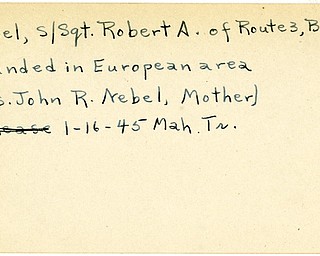 el, S/Sgt. Robert A. of Route 3, B
unded in European area
s. John R. Nebel, Mother)
ease 1-16-45 Mah. Tr.